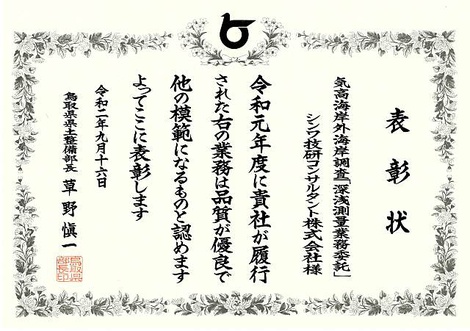 表彰状
気高海岸外海岸調査「深浅測量業務委託」
シンワ技研コンサルタント株式会社様
令和元年度に貴社が履行
された右の業務は品質が優良で
他の模範になるものと認めます
よってここに表彰します
令和二年九月十六日
鳥取県県土整備部長 草野愼一